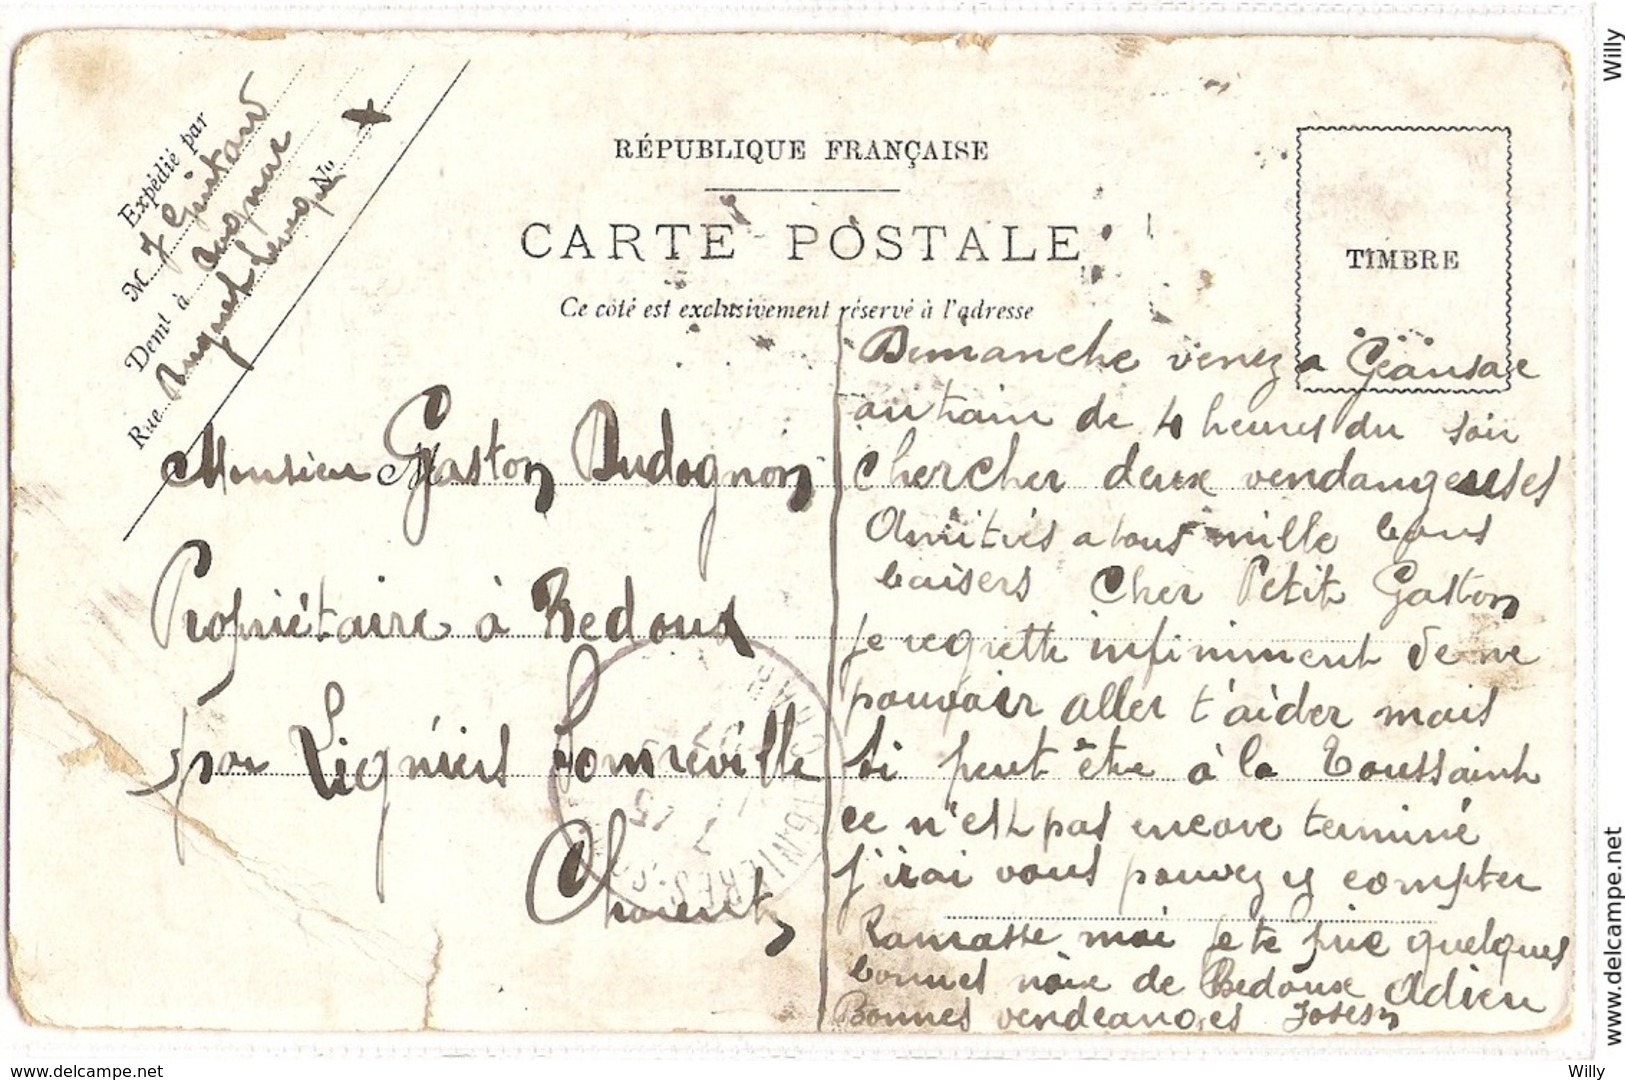 Expédié par
M. J Guitard
Demt à
Rue
No
RÉPUBLIQUE FRANÇAISE
CARTE POSTALE
Ce côté est exclusivement réservé à l'adresse
TIMBRE
Monsieur Gaston Budognon
Propriétaire à Bedoux
par Lignières Sonneville
Charente
Dimanche venez a Géansac
au train de 4 heures du soir
chercher deux vendangeuses
Amitiés a tous mille bons
baisers Cher Petit Gaston
je regrette infiniment de ne
pouvoir aller t'aider mais
si peut être à la Toussaint
ce n'est pas encore terminé
j'irai vous pouvez y compter
Ramasse moi je te prie quelques
bonnes noix de Bedoux Adieu
Bonnes vendeanges Joseph
Willy
www.delcampe.net
www.delcampe.net
Willy